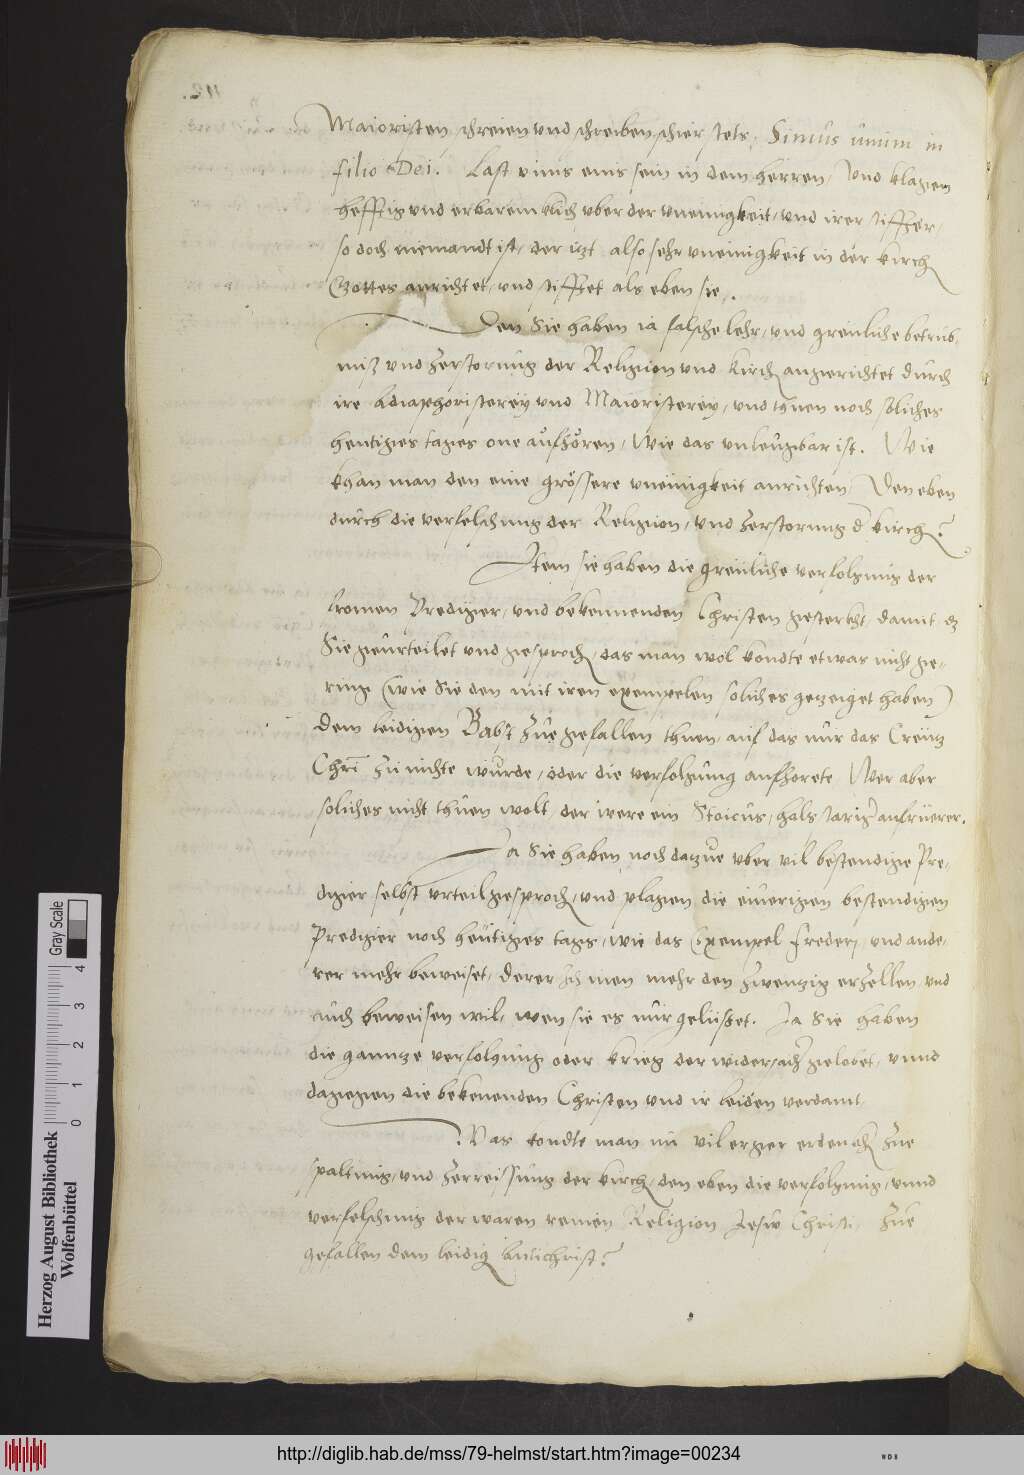 Maioristen schreien und schreiben schier stets, Simus unum in
filio Dei. Last vnns eins sein in dem herren, Und klagen
hefftig und erbaremklich vber der vneinigkeit, und irer stiffter,
so doch niemandt ist, der itzt also sehr vneinigkeit in der kirch
Gottes anrichtet, und stifftet als eben sie.
Den Sie haben ia falsche lehr, und greuliche betrüb,
niß und Zerstorung der Religion und kirch angerichtet durch
ire Adiaphoristerey und Maioristerey, und thuen noch solches
heutiges tages one aufhören, Wie das unleugbar ist. Wie
khan man den eine grössere vneinigkeit anrichten, Den eben
durch die verfelschung der Religion, und Zerstorung d kirch?
Item sie haben die greuliche verfolgung der
fromen Prediger, und bekennenden Christen gesterckt, damit dz
Sie geurteilet und gesproch, das man wol kondte etwas nicht ge-
ring (wie Sie den mit iren exempelen soliches getzeiget haben)
Dem leidigen Babst Zue gefallen thuen, auf das nur das Creutz
Chri Zu nichte wurde, oder die verfolgung aufhorete, Wer aber
soliches nicht thuen wolt, der were ein Stoicus, hals starig aufrüerer.
Ja Sie haben noch datzue vber vil bestendige Pre-
diger selbst vrteil gesproch, und plagen die einerigen bestendigen
Prediger noch heutiges tags, wie das Exempel Frederj, und ande-
rer mehr beweiset, Derer Ich inen mehr den Zwentzig erzellen und
auch beweisen wil, wen sie es nur gelüstet. Ja Sie haben
die ganntze verfolgung oder krieg der widersach gelobet, unnd
dagegen die bekenenden Christen und ir leiden verdamt.
Was kondte man nu vil erger erdenck Zue
spaltung, und Zerreissung der kirch, den eben die verfolgung, unnd
verfelschung der waren reinen Religion Jesu Christi, Zue
gefallen dem leidig Antichrist?
Herzog August Bibliothek
Wolfenbüttel
Gray Scale
0 1 2 3 4
http://diglib.hab.de/mss/79-helmst/start.htm?image=00234